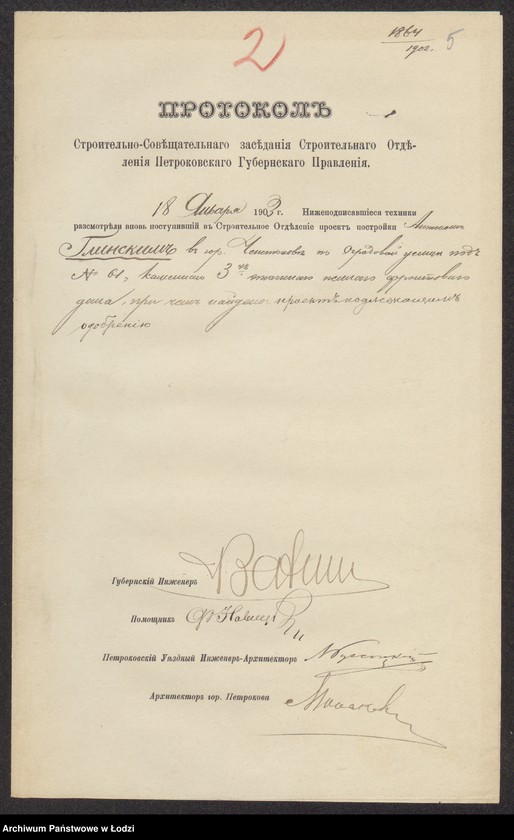 1864
1902.
5
2
ПРОТОКОЛЪ
Строительно-Совѣщательнаго засѣданія Строительнаго Отдѣ-
ленія Петроковскаго Губернскаго Правленія.
18 Января 1903 г. Нижеподписавшіеся техники
разсмотрѣли вновь поступившій въ Строительное Отдѣленіе проектъ постройки
Глинскимъ въ гор. Ченстоховѣ по улицѣ подъ
№ 61, каменнаго 3хъ этажнаго жилаго фронтоваго
дома, при чемъ найдено: проектъ подлежащимъ
одобренію
Губернскій Инженеръ
Помощникъ
Петроковскій Уѣздный Инженеръ-Архитекторъ
Архитекторъ гор. Петрокова
Archiwum Państwowe w Łodzi